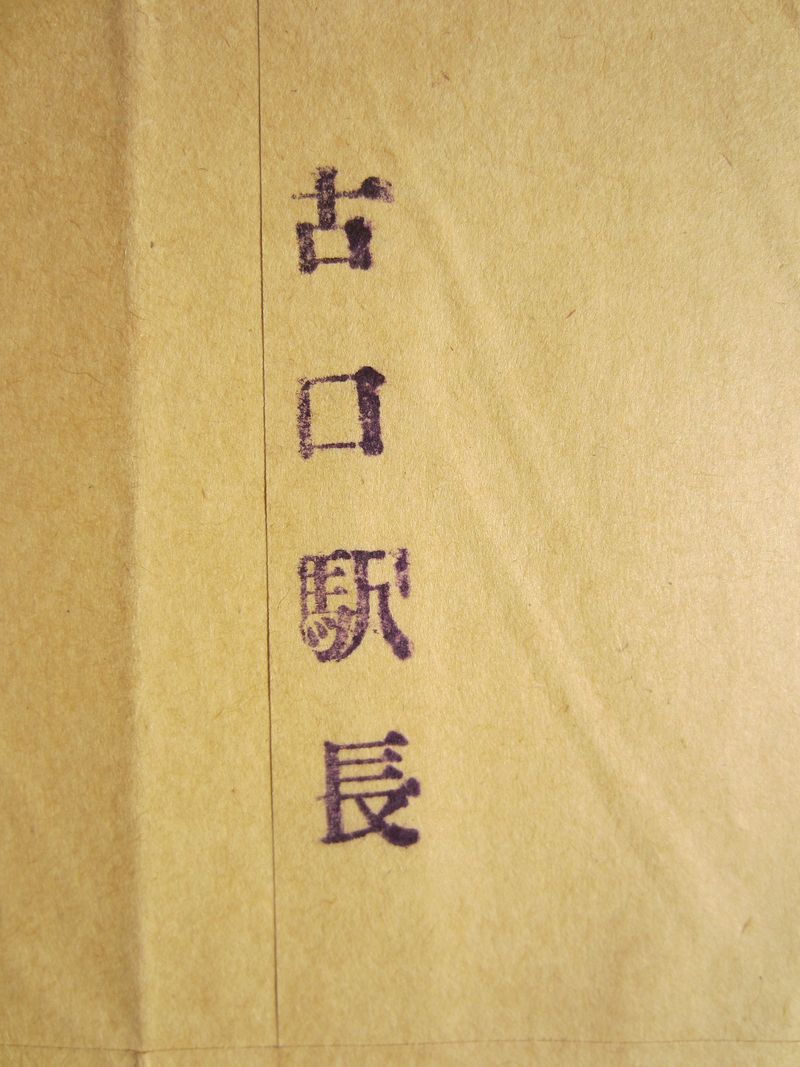 古口駅長